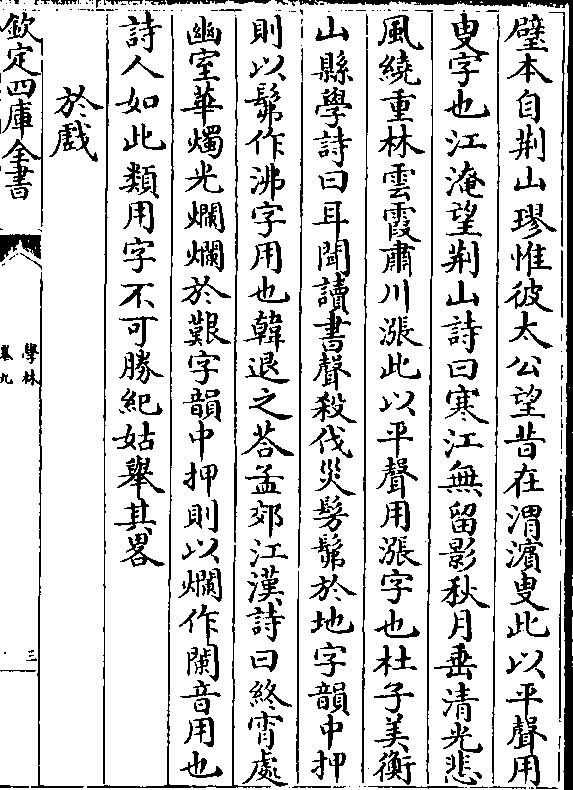 璧本自荆山璆惟彼太公望昔在渭濵叟此以平聲用
叟字也江淹望荆山詩曰寒江無留影秋月垂清光悲
風繞重林雲霞肅川漲此以平聲用漲字也杜子美衡
山縣學詩曰耳聞讀書聲殺伐災髣髴於地字韻中押
則以髴作沸字用也韓退之荅孟郊江漢詩曰終宵處
幽室華燭光爛爛於艱字韻中押則以爛作闌音用也
詩人如此類用字不可勝紀姑舉其畧
於戲
欽定四庫全書
學林
卷九
三